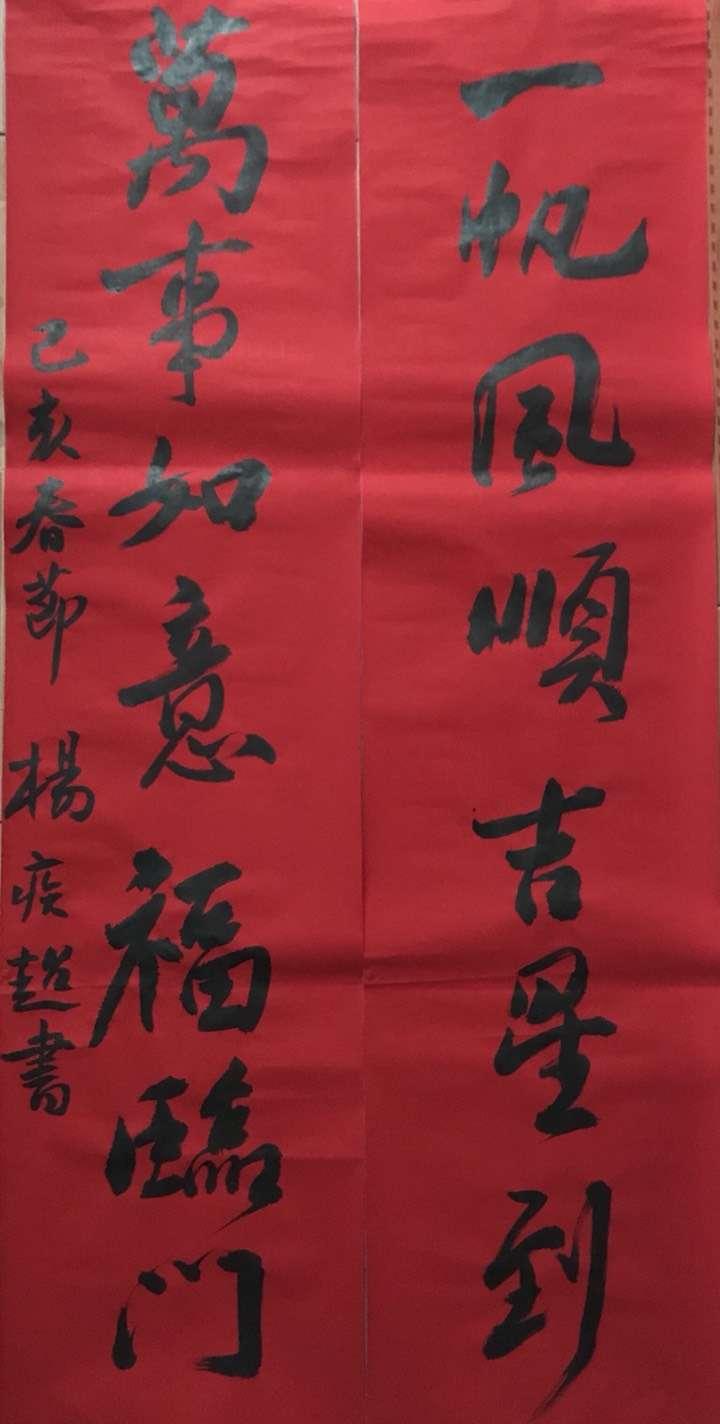 一帆風順吉星到
萬事如意福臨门
己亥春節 楊疾超書